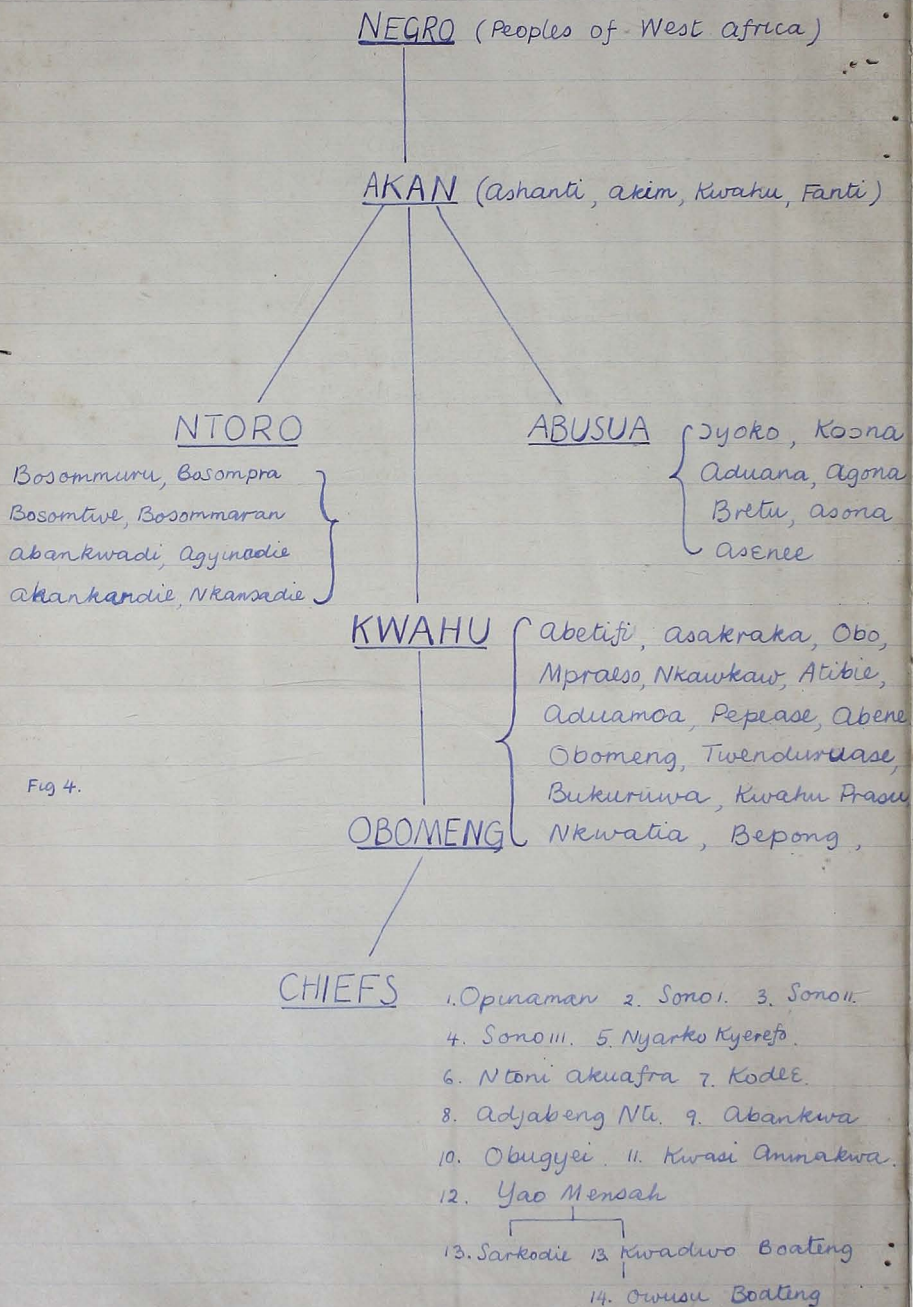 NEGRO (Peoples of West Africa)
AKAN (Ashanti, Akim, Kwahu, Fanti)
NTORO
Bosommuru, Bosompra
Bosomtwe, Bosommaran
Abankwadi, Agyinadie
Akankandie, Nkansadie
ABUSUA
Ɔyoko, Koɔna
Aduana, Agona
Bretu, Asona
Asɛnee
KWAHU
Abetifi, Asakraka, Obo,
Mpraeso, Nkawkaw, Atibie,
Aduamoa, Pepease, Abene
Obomeng, Twenduruase,
Bukuruwa, Kwahu Prasu
Nkwatia, Bepong,
Fig 4.
OBOMENG
CHIEFS
1. Opinaman 2. Sono I. 3. Sono II.
4. Sono III. 5. Nyarko Kyerefo.
6. Ntoni Akuafra 7. Kodeɛ.
8. Adjabeng Nti. 9. Abankwa
10. Obugyei 11. Kwasi Ammakwa.
12. Yao Mensah
13. Sarkodie 13. Kwadwo Boateng
14. Owusu Boateng